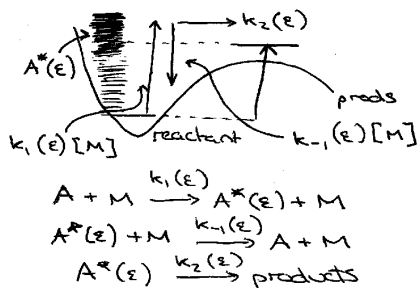 k₂(ε)
A*(ε)
prods
reactant
k₁(ε)[M]
k₋₁(ε)[M]
A + M —k₁(ε)→ A*(ε) + M
A*(ε) + M —k₋₁(ε)→ A + M
A*(ε) —k₂(ε)→ products